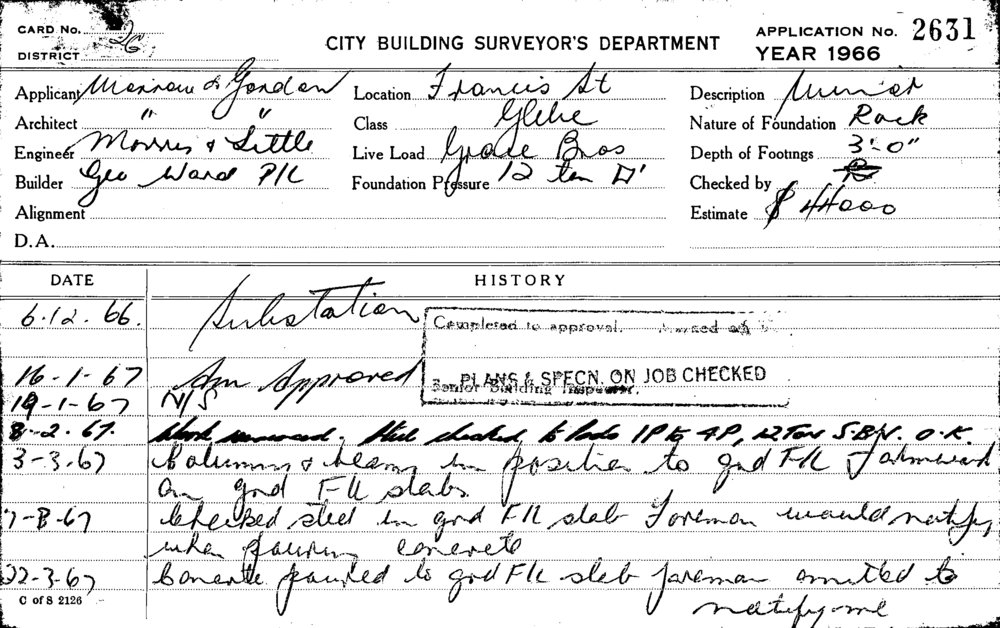 CARD No. 26
DISTRICT
CITY BUILDING SURVEYOR'S DEPARTMENT
APPLICATION No. 2631
YEAR 1966
Applicant Morrow & Gordon
Location Francis St
Description
Architect " "
Class Glebe
Nature of Foundation Rock
Engineer Morris & Little
Live Load Grace Bros
Depth of Footings 3'-0"
Builder Geo Ward P/L
Foundation Pressure 12 ton □'
Checked by
Alignment
Estimate $ 44000
D.A.
DATE HISTORY
6.12.66. Substation
Completed to approval.
16-1-67 Am Approved
PLANS & SPECN. ON JOB CHECKED
Senior Building Inspector.
19-1-67 N/S
8-2-67. Work . Steel checked to Pads 1P to 4P, 12 Ton S.B.V. O.K.
3-3-67 Columns & beams in position to gnd F/L
on gnd F/L slabs
7-3-67 Checked steel in gnd F/L slab Foreman would notify
when pouring concrete
22-3-67 Concrete poured to gnd F/L slab foreman omitted to
notify me
C of S 2126